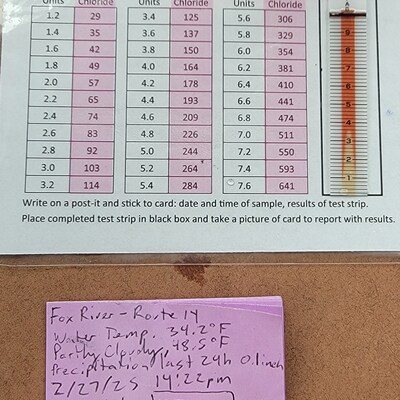 Units Chloride Units Chloride Units Chloride
1.2 29 3.4 125 5.6 306
1.4 35 3.6 137 5.8 329
1.6 42 3.8 150 6.0 354
1.8 49 4.0 164 6.2 381
2.0 57 4.2 178 6.4 410
2.2 65 4.4 193 6.6 441
2.4 74 4.6 209 6.8 474
2.6 83 4.8 226 7.0 511
2.8 92 5.0 244 7.2 550
3.0 103 5.2 264 7.4 593
3.2 114 5.4 284 7.6 641
9
8
7
6
5
4
3
2
1
Write on a post-it and stick to card: date and time of sample, results of test strip.
Place completed test strip in black box and take a picture of card to report with results.
Fox River - Route 14
Water Temp. 34.2°F
Partly Cloudy, 48.5°F
Precipitation last 24h 0.1inch
2/27/25 14:22pm